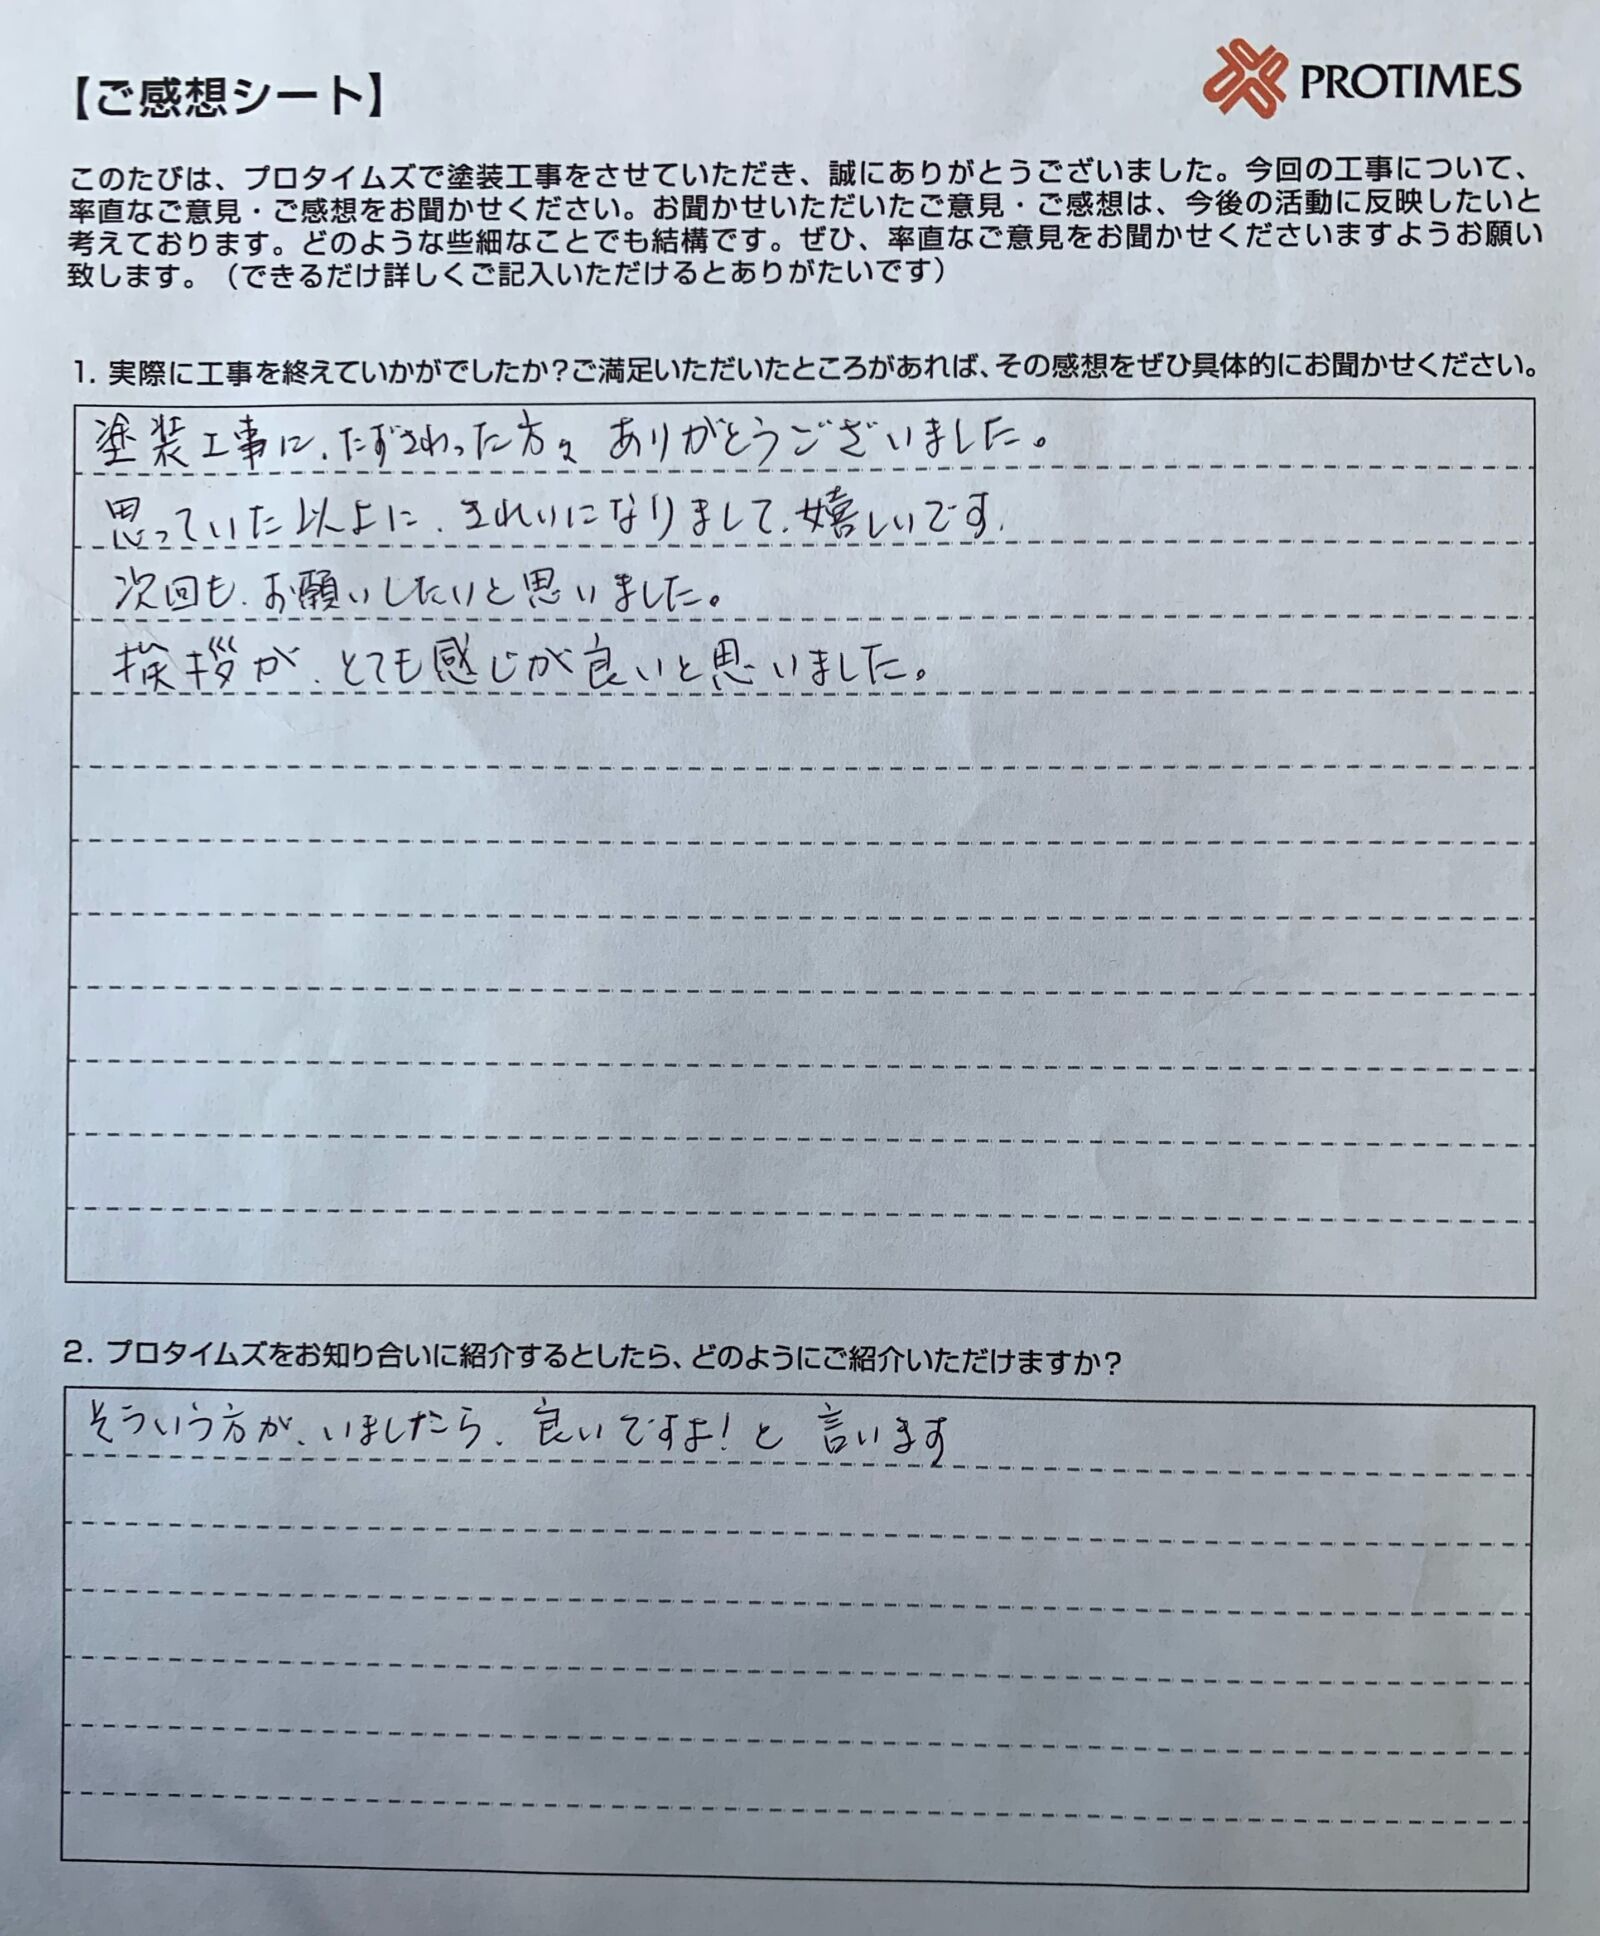 【ご感想シート】
PROTIMES
このたびは、プロタイムズで塗装工事をさせていただき、誠にありがとうございました。今回の工事について、
率直なご意見・ご感想をお聞かせください。お聞かせいただいたご意見・ご感想は、今後の活動に反映したいと
考えております。どのような些細なことでも結構です。ぜひ、率直なご意見をお聞かせくださいますようお願い
致します。（できるだけ詳しくご記入いただけるとありがたいです）
1. 実際に工事を終えていかがでしたか？ご満足いただいたところがあれば、その感想をぜひ具体的にお聞かせください。
塗装工事に、たずさわった方々 ありがとうございました。
思っていた以上に、きれいになりまして、嬉しいです、
次回も、お願いしたいと思いました。
挨拶が、とても感じが良いと思いました。
2. プロタイムズをお知り合いに紹介するとしたら、どのようにご紹介いただけますか？
そういう方が、いましたら、良いですよ！と 言います